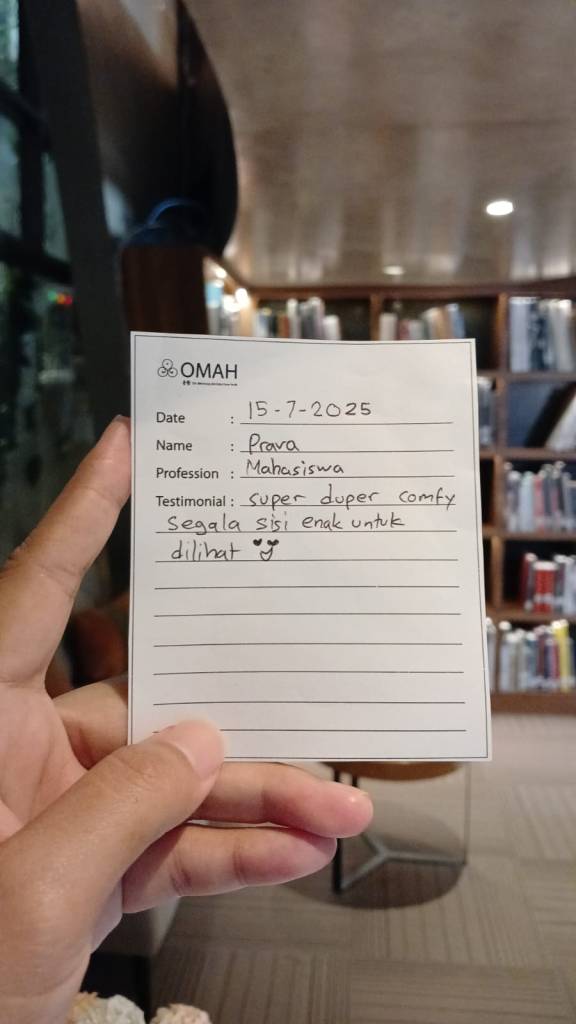 OMAH
Date : 15-7-2025
Name : Prava
Profession : Mahasiswa
Testimonial : super duper comfy
segala sisi enak untuk
dilihat